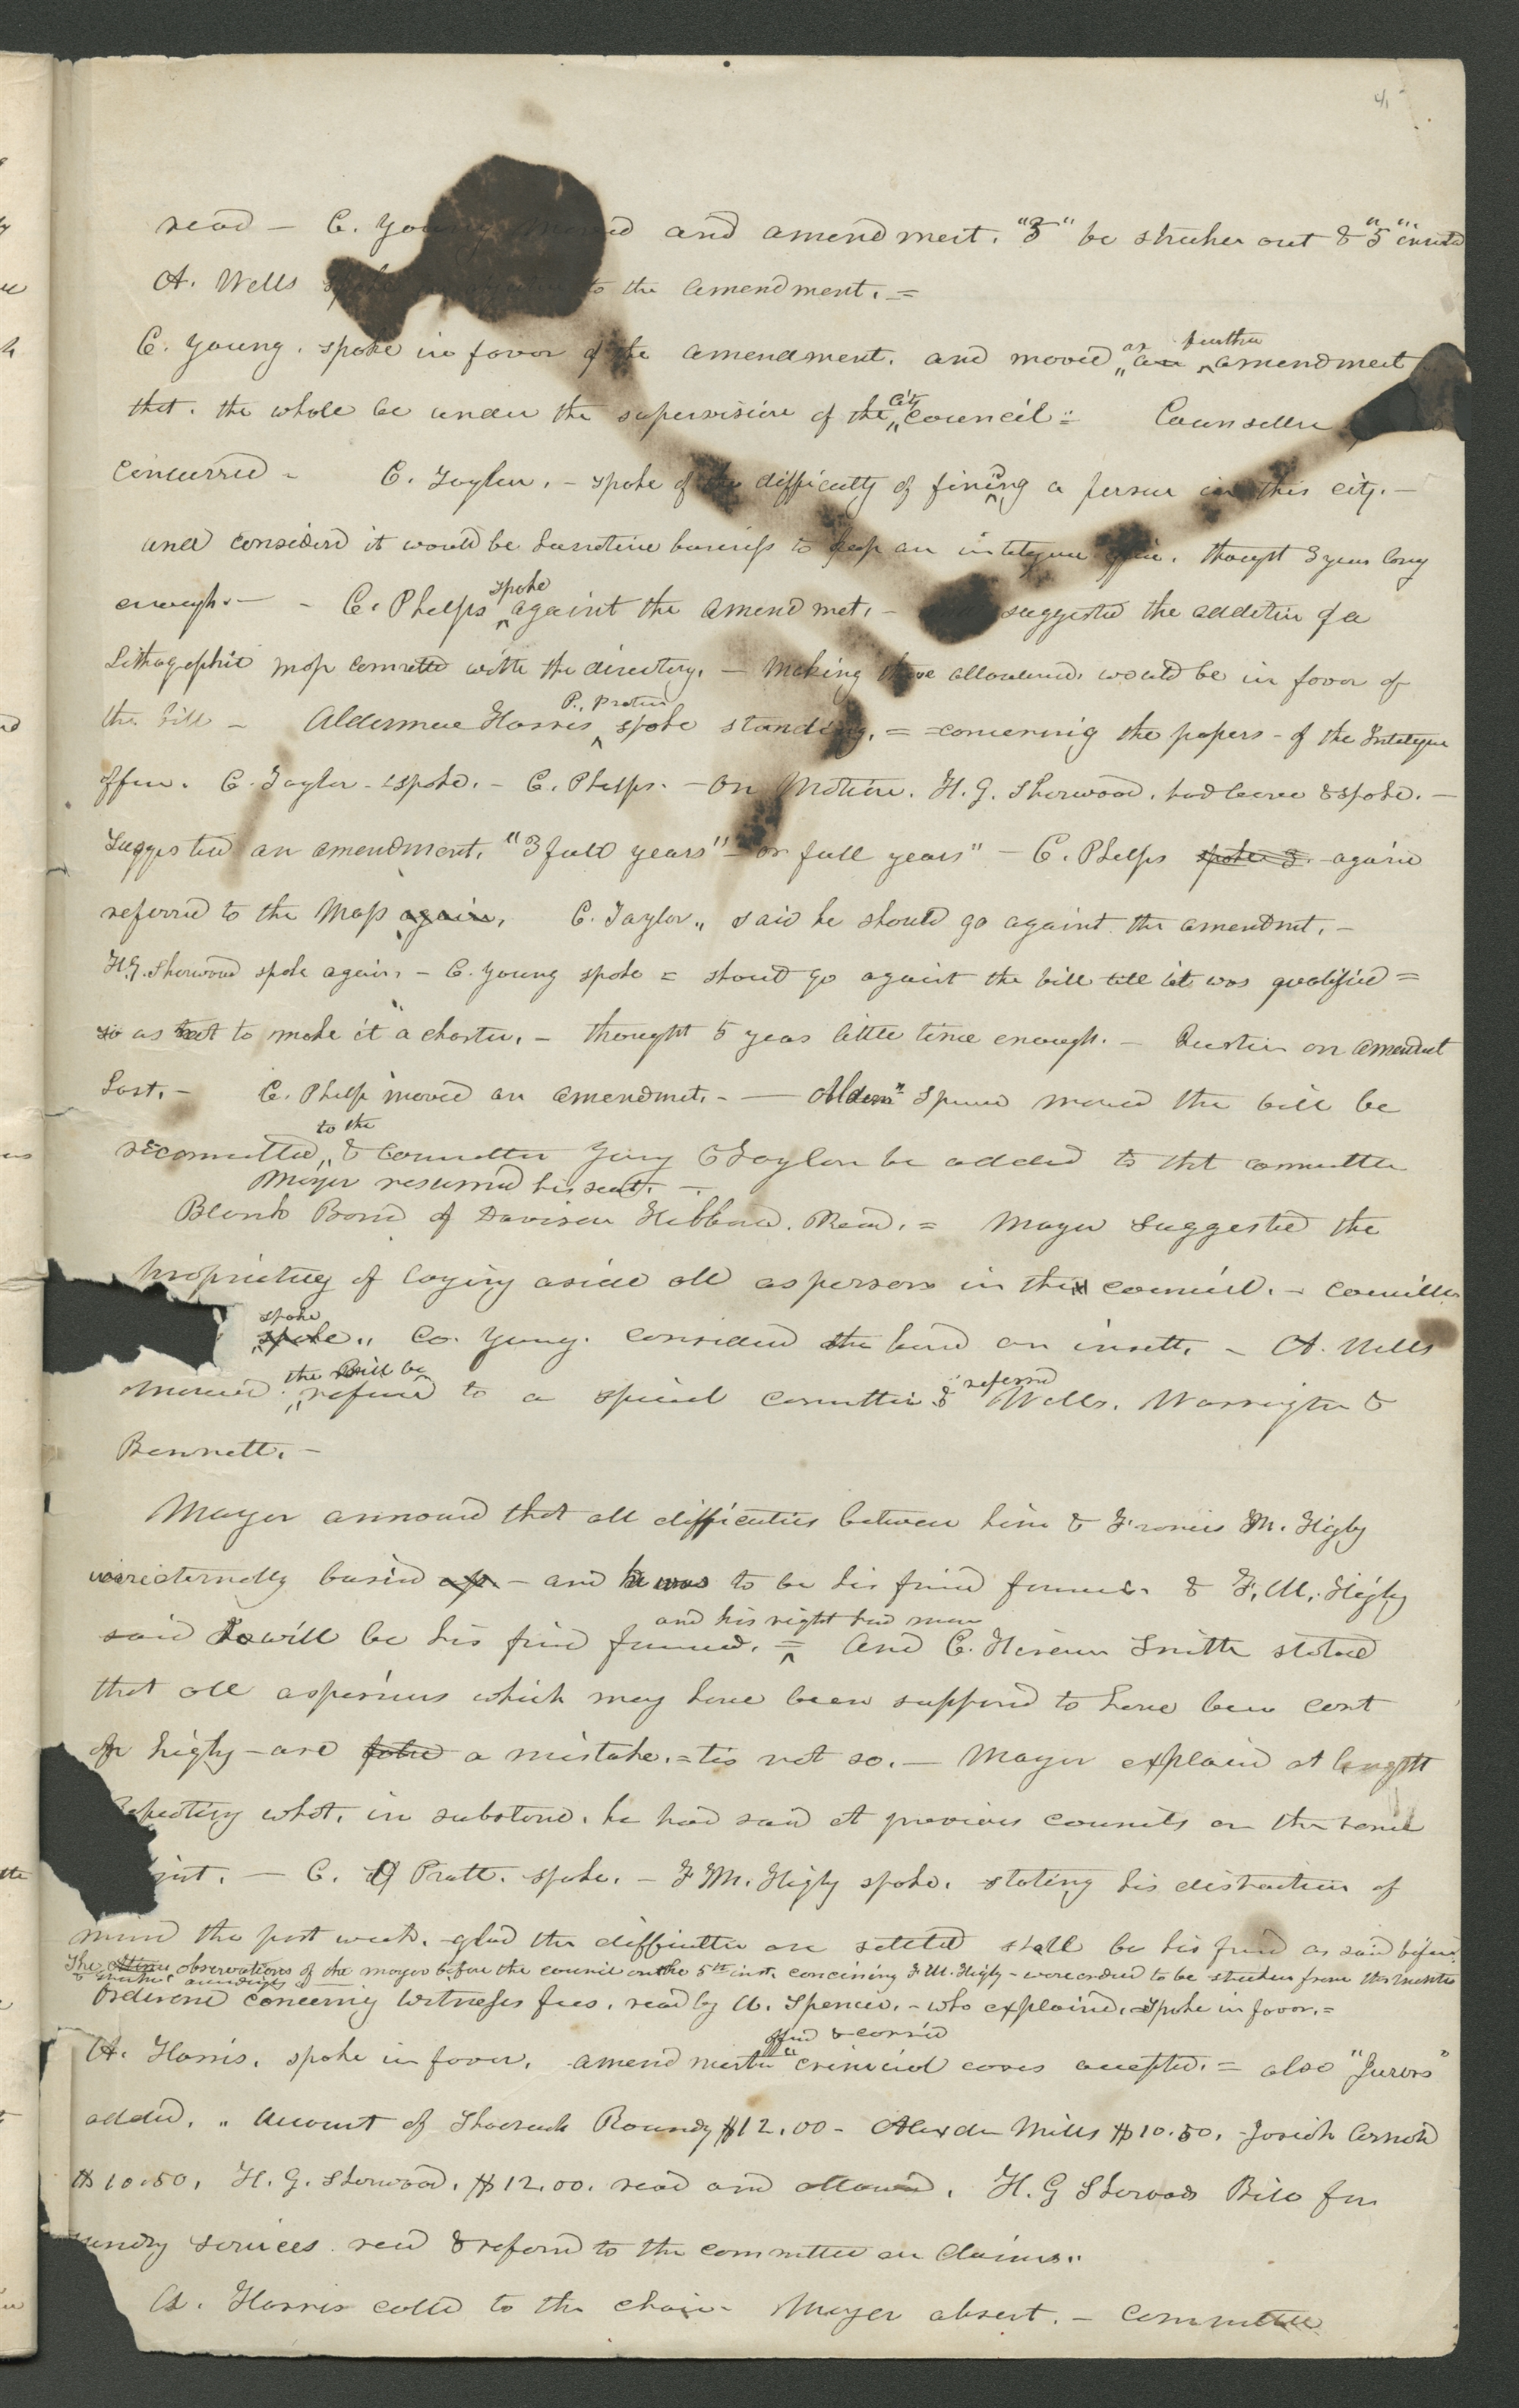 4,
read — C. Young moved and amendment. "3" be stricken out & "5" inserted
A. Wells spoke to the amendment. =
C. Young. spoke in favor of the amendment. and moved as an further amendment
that. the whole be under the supervision of the City council = Councillor
concurred — C. Taylor. — spoke of the difficulty of fining a person in this city. —
and considerd it would be business to keep an office. thought 3 years long
enough. — — C. Phelps spoke against the amendmet. — suggested the addition of a
Lithographic map connected with the directory. — making these allowances would be in favor of
the bill — Alderman Harris P. Protem spoke standing. = concerning the papers — of the
office. C. Taylor — spoke. — C. Phelps. — On Motion. H. G. Sherwood. had leave & spoke. —
Suggested an amendment. "3 full years" — or full years" — C. Phelps spoke 3. again
referred to the Map again. C. Taylor. said he should go against the amendmt. —
H. G. Sherwood spoke again. — C. Young spoke = should go against the bill till it was qualified =
so as not to make it a charter. — thought 5 years little time enough. — Question on amendmet
Lost. — C. Phelps moved an amendmet. — — Aldemn Spencer moved the bill be
recommitted, to the & committee Young & Taylor be added to tht committee
Mayor resumed his seat. —
Blank Bond of Davison Hibbard. Read. = Mayor suggested the
propriety of laying aside all aspersions in the council. — councillor
spoke spoke. Co. Young. considered the bond an insult. — A. Wells
moved. the Bill be refered to a special committee & referred Wells. Warrington &
Bennett. —
Mayor announcd that all difficulties between him & Francis M. Higby
were eternally buried up. — and he was to be his friend forever. & F. M. Higby
said I will be his frind forever. = and his right hand man And C. Hiram Smith stated
that all aspersions which may have been supposed to have been cast
on higby — are false a mistake. = tis not so. — Mayor explaind at length
Repeating what. in substance. he had said at previous councils on the same
— C. O Pratt. spoke. — F M. Higby spoke. stating his distraction of
mind the past week. glad the difficulties are settled shall be his friend as said before.
The observations of the mayor before the council on the 5th inst. concerning F. M. Higby — were ordered to be stricken from the minutes
Ordinance concerning Witnesses fees. read by A. Spencer. — who explained. Spoke in favor. =
A. Harris. spoke in favor. amendment offerd & carried "criminal cases accepted. = also "Jurors"
added. " Account of Shadrach Roundy $12.00 — Alexder Mills $10.50. — Josiah Arnold
$10.50. H. G. Sherwood. $12.00. read and allowed. H. G Sherwoods Bill for
sundry services. read & referd to the committee on Claims.
A. Harris called to the chair — Mayor absent. — committee